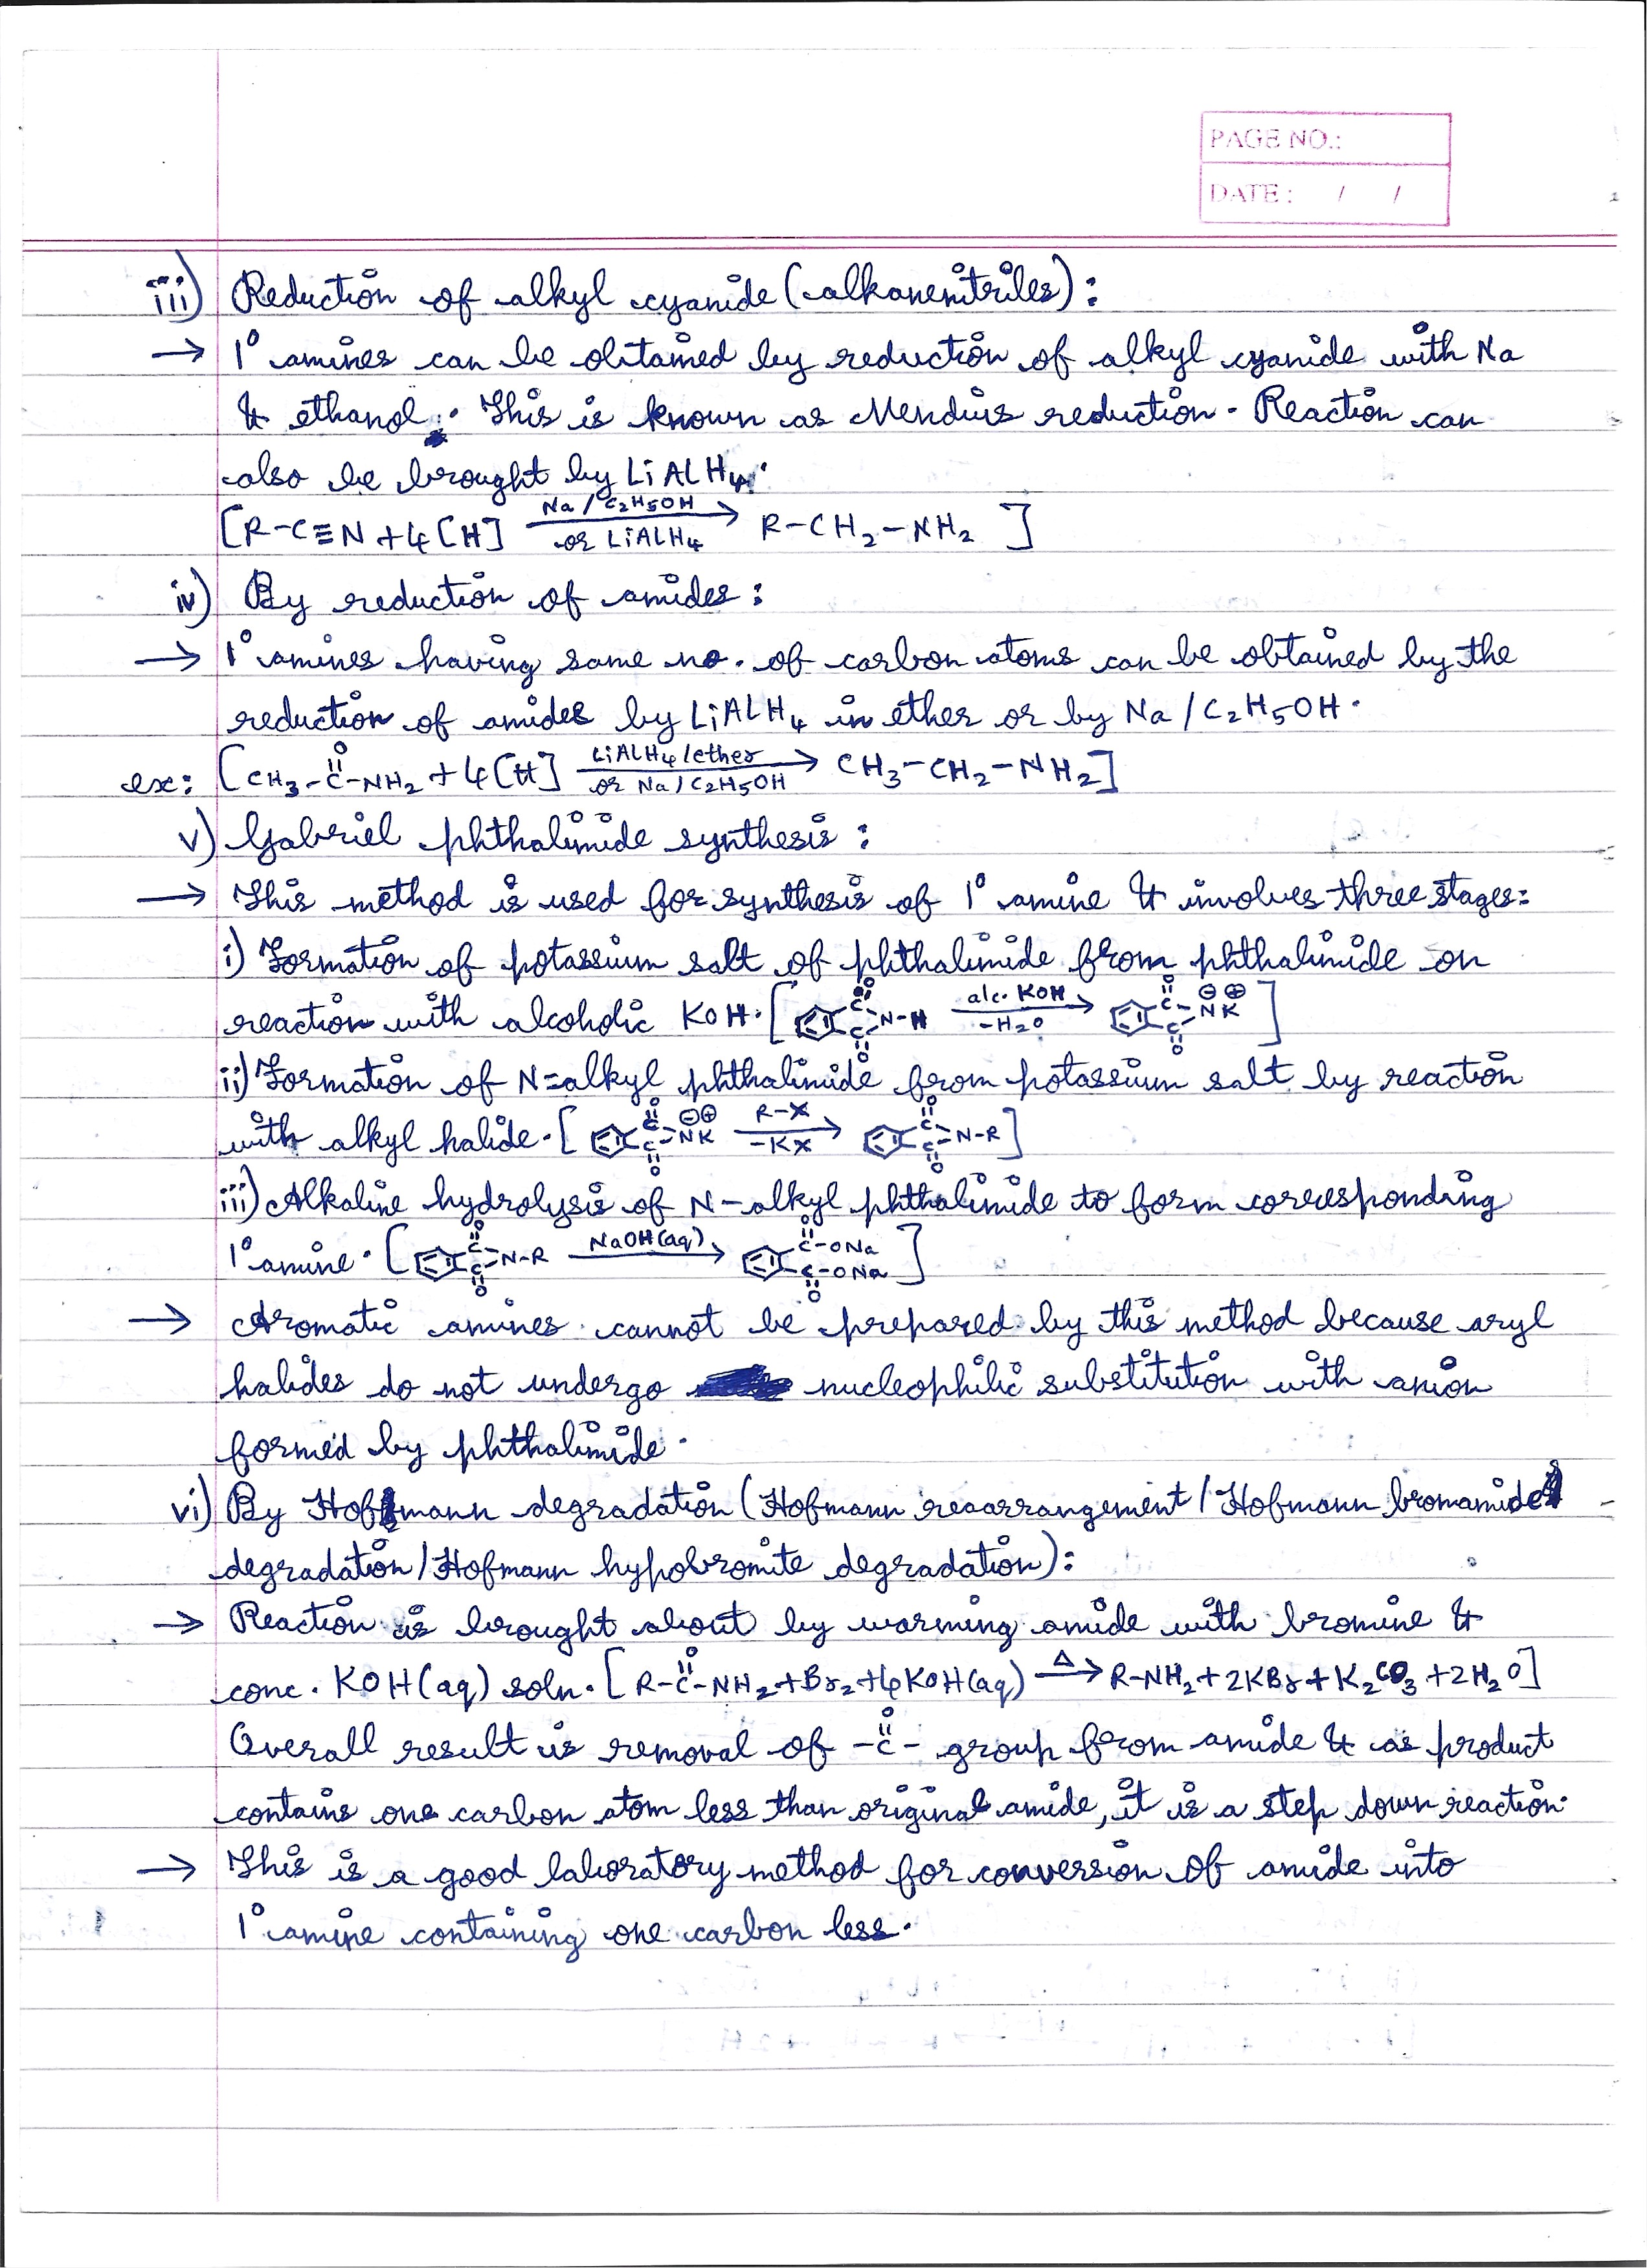 PAGE NO.:
DATE: / /
iii) Reduction of alkyl cyanide (alkanenitriles):
→ 1° amines can be obtained by reduction of alkyl cyanide with Na
& ethanol. This is known as Mendius reduction. Reaction can
also be brought by LiAlH4.
[R-C≡N + 4[H] Na/C2H5OH or LiAlH4 → R-CH2-NH2]
iv) By reduction of amides:
→ 1° amines having same no. of carbon atoms can be obtained by the
reduction of amides by LiAlH4 in ether or by Na/C2H5OH.
ex: [CH3-C(=O)-NH2 + 4[H] LiAlH4/ether or Na/C2H5OH → CH3-CH2-NH2]
v) Gabriel phthalimide synthesis:
→ This method is used for synthesis of 1° amine & involves three stages:
i) Formation of potassium salt of phthalimide from phthalimide on
reaction with alcoholic KOH. [C=O C=O N-H alc. KOH -H2O → C=O C=O N⊖K⊕]
ii) Formation of N-alkyl phthalimide from potassium salt by reaction
with alkyl halide. [C=O C=O N⊖K⊕ R-X -KX → C=O C=O N-R]
iii) Alkaline hydrolysis of N-alkyl phthalimide to form corresponding
1° amine. [C=O C=O N-R NaOH(aq) → C(=O)-ONa C(=O)-ONa]
→ Aromatic amines cannot be prepared by this method because aryl
halides do not undergo nucleophilic substitution with anion
formed by phthalimide.
vi) By Hofmann degradation (Hofmann rearrangement / Hofmann bromamide
degradation / Hofmann hypobromite degradation):
→ Reaction is brought about by warming amide with bromine &
conc. KOH(aq) soln. [R-C(=O)-NH2 + Br2 + 4KOH(aq) Δ→ R-NH2 + 2KBr + K2CO3 + 2H2O]
Overall result is removal of -C(=O)- group from amide & as product
contains one carbon atom less than original amide, it is a step down reaction.
→ This is a good laboratory method for conversion of amide into
1° amine containing one carbon less.